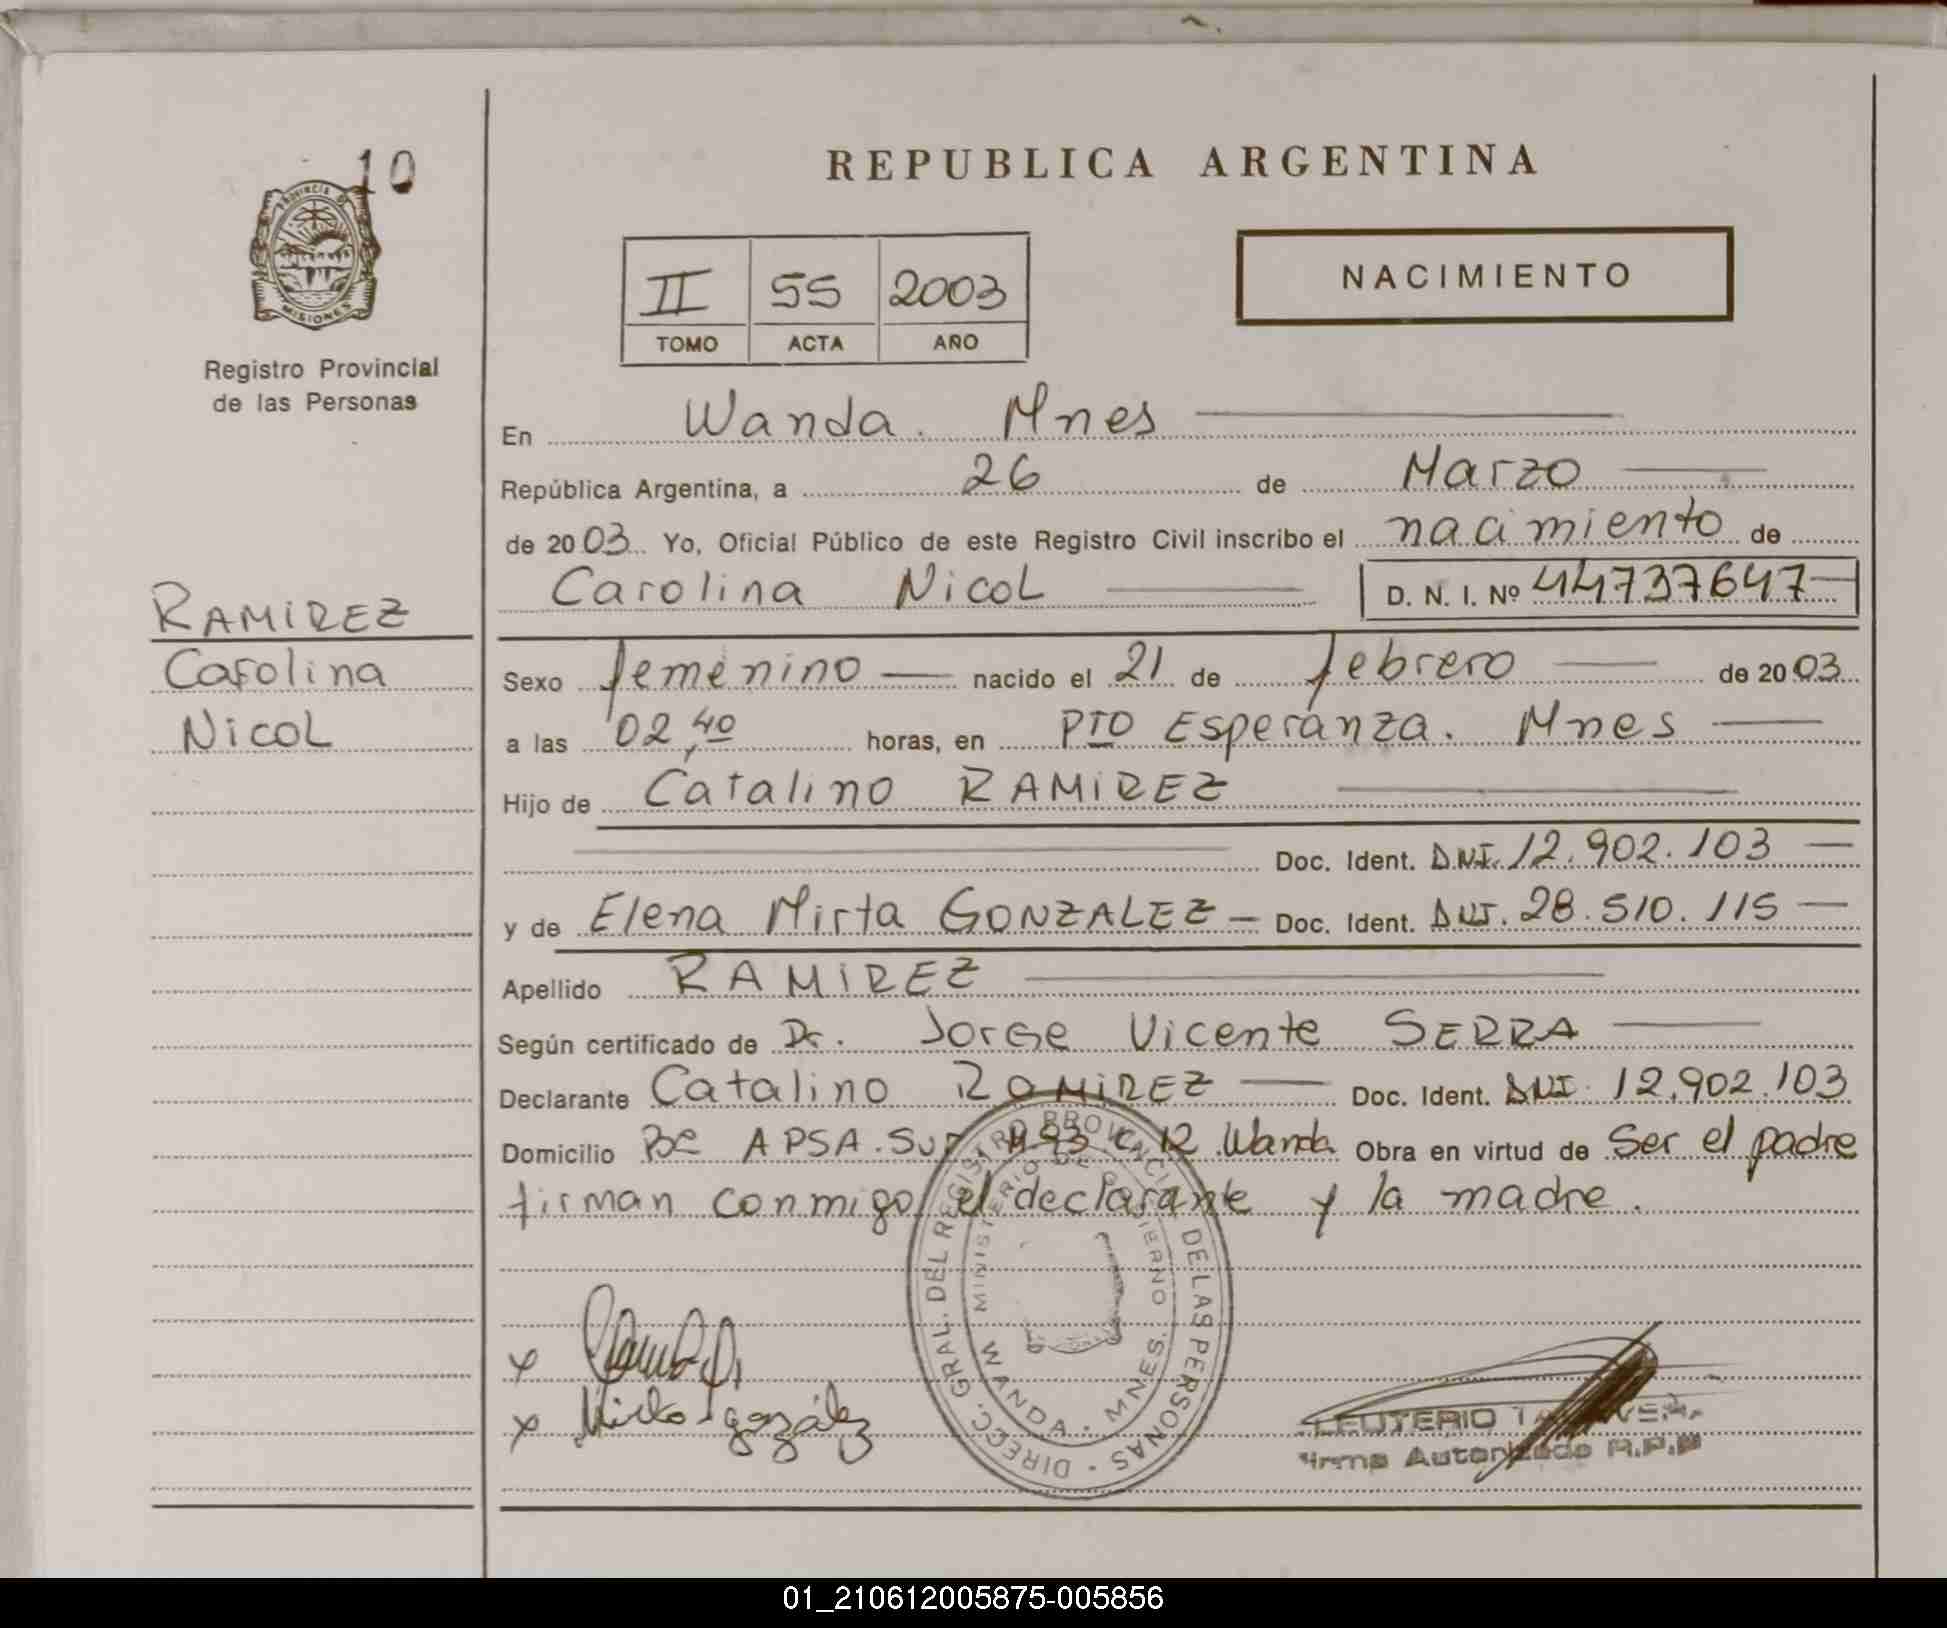 10
PROVINCIA DE
MISIONES
Registro Provincial
de las Personas
RAMIREZ
Carolina
Nicol
REPUBLICA ARGENTINA
II 55 2003
TOMO ACTA AÑO
NACIMIENTO
En Wanda. Mnes
República Argentina, a 26 de Marzo
de 2003 Yo, Oficial Público de este Registro Civil inscribo el nacimiento de
Carolina Nicol D. N. I. Nº 44737647
Sexo femenino nacido el 21 de febrero de 2003
a las 02,40 horas, en Pto Esperanza. Mnes
Hijo de Catalino RAMIREZ
Doc. Ident. DNI. 12.902.103
y de Elena Mirta GONZALEZ Doc. Ident. DNI. 28.510.115
Apellido RAMIREZ
Según certificado de Dr. Jorge Vicente SERRA
Declarante Catalino RAMIREZ Doc. Ident. DNI 12.902.103
Domicilio APSA. Sur 12 Wanda Obra en virtud de ser el padre
firman conmigo el declarante y la madre.
DIRECC. GRAL. DEL REGISTRO PROVINCIAL DE LAS PERSONAS
MINISTERIO DE GOBIERNO
WANDA - MNES.
x
x Mirta gozález
LEUTERIO
Firma Autorizada R.P.P
01_210612005875-005856